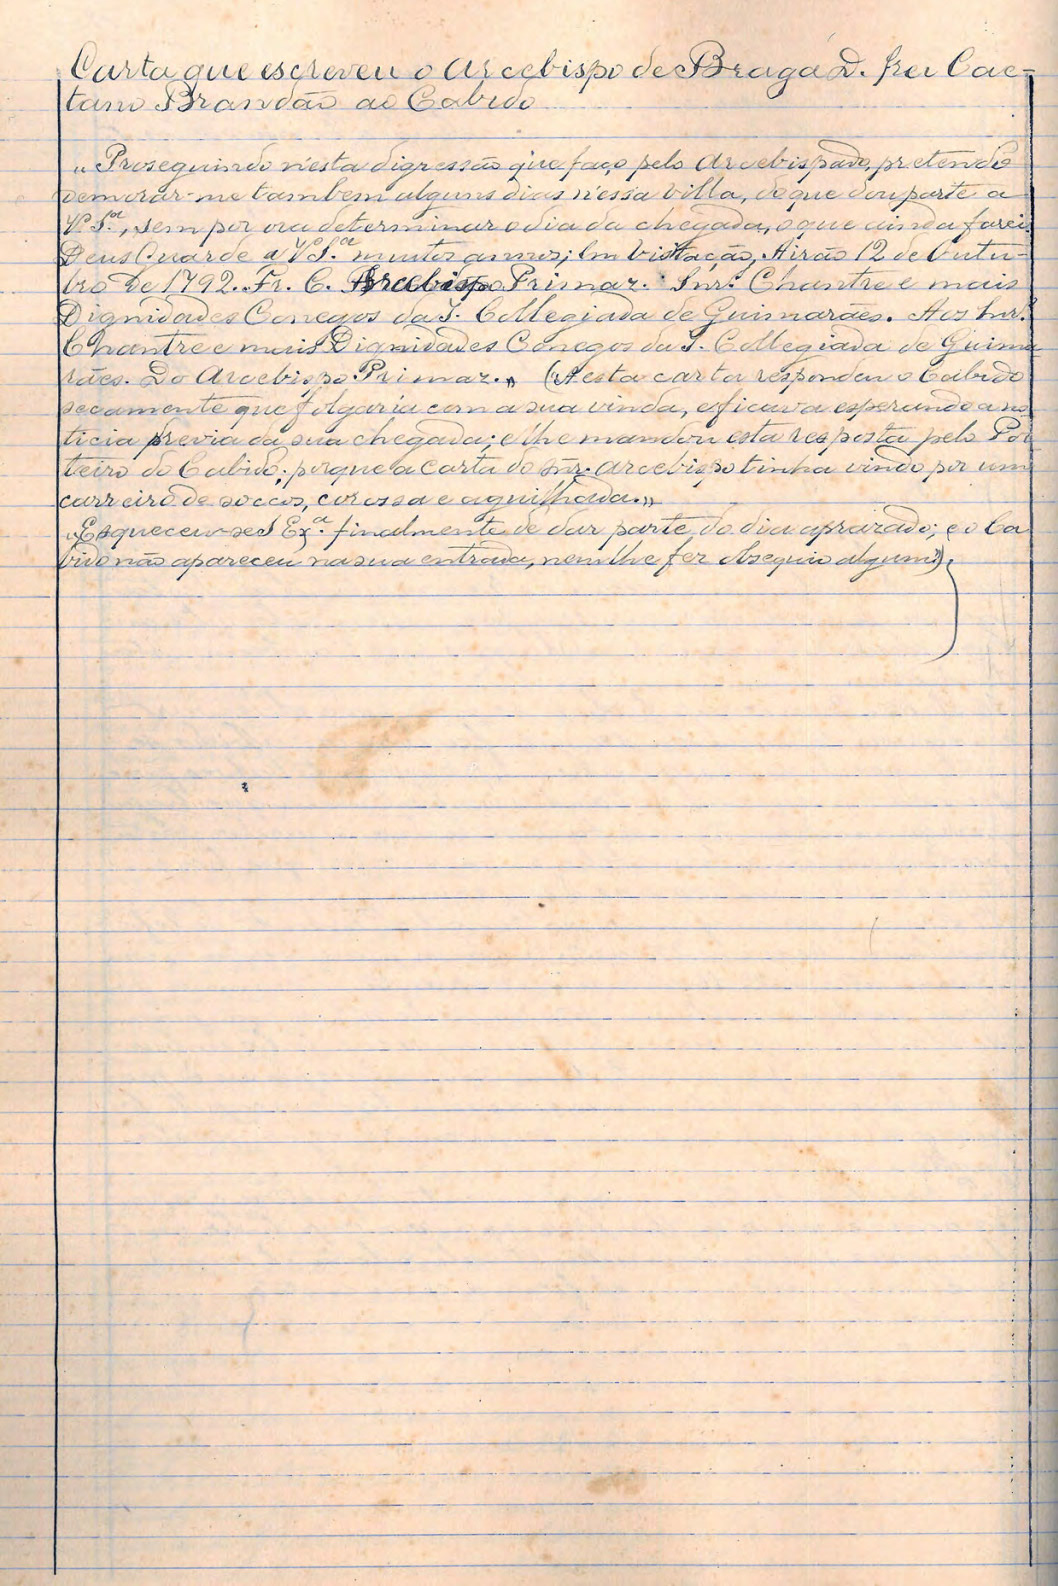 Carta que escreveu o Arcebispo de Braga D. frei Cae-
tano Brandão ao Cabido
„Proseguindo n'esta digressão que faço pelo Arcebispado, pretendo
demorar-me tambem alguns dias n'essa villa, do que dou parte a
V. S.ª, sem por ora determinar o dia da chegada, o que ainda farei.
Deus Guarde a V. S.ª muitos annos; Em Visitação, Airão 12 de Outu-
bro de 1792. Fr. C. Arcebispo Primaz. Snr. Chantre e mais
Dignidades Conegos da I. Collegiada de Guimarães. Aos Snr.
Chantre e mais Dignidades Conegos da I. Collegiada de Guima
rães. Do Arcebispo Primaz.„ (A esta carta respondeu o Cabido
seccamente que folgaria com a sua vinda, e ficava esperando a no
ticia previa da sua chegada; e lhe mandou esta resposta pelo Por
teiro do Cabido; porque a carta do Snr. Arcebispo tinha vindo por um
carreiro de soccos, corossa e aguilhada.„
„Esqueceu-se S. Ex.ª finalmente de dar parte do dia aprazado; e o Ca
bido não apareceu na sua entrada, nem lhe fez obsequio algum.)